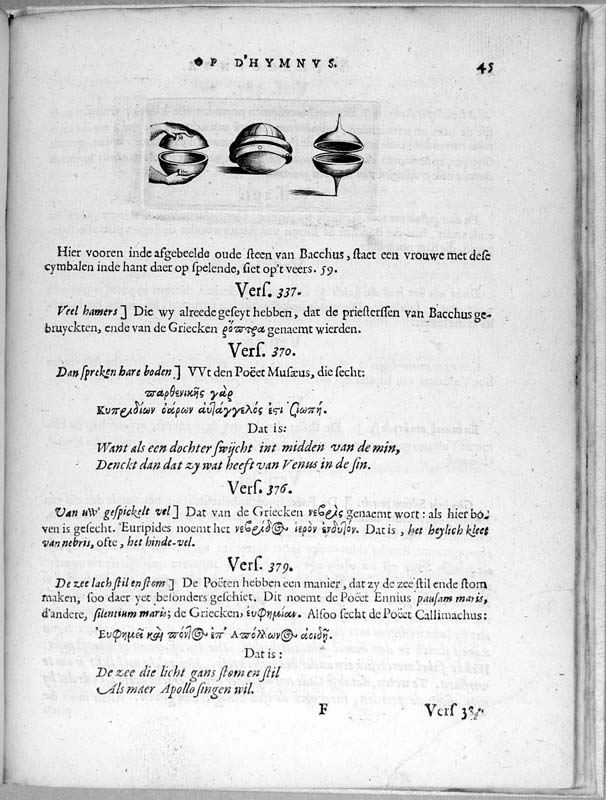 OP D'HYMNVS. 45
Hier vooren inde afgebeelde oude steen van Bacchus, staet een vrouwe met dese
cymbalen inde hant daer op spelende, siet op't veers. 59.
Vers. 337.
Veel hamers] Die wy alreede geseyt hebben, dat de priesterssen van Bacchus ge-
bruyckten, ende van de Griecken ῥόπτρα genaemt wierden.
Vers. 370.
Dan spreken hare boden] VVt den Poëet Musæus, die secht:
παρθενικῆς γὰρ
Κυπριδίων ὀάρων αὐτάγγελός ἐστι σιωπή.
Dat is:
Want als een dochter swijcht int midden van de min,
Denckt dan dat zy wat heeft van Venus in de sin.
Vers. 376.
Van uw' gespickelt vel] Dat van de Griecken νεβρὶς genaemt wort: als hier bo-
ven is gesecht. Euripides noemt het νεβρίδος ἱερὸν ἐνδυτόν. Dat is, het heylich kleet
van nebris, ofte, het hinde-vel.
Vers. 379.
De zee lach stil en stom] De Poëten hebben een manier, dat zy de zee stil ende stom
maken, soo daer yet besonders geschiet. Dit noemt de Poëet Ennius pausam maris,
d'andere, silentium maris; de Griecken, ευφημίαν. Alsoo secht de Poëet Callimachus:
Ἐυφημεῖ καὶ πόντος ἐπ' Απόλλωνος ἀοιδῇ.
Dat is:
De zee die licht gans stom en stil
Als maer Apollo singen wil.
F Vers